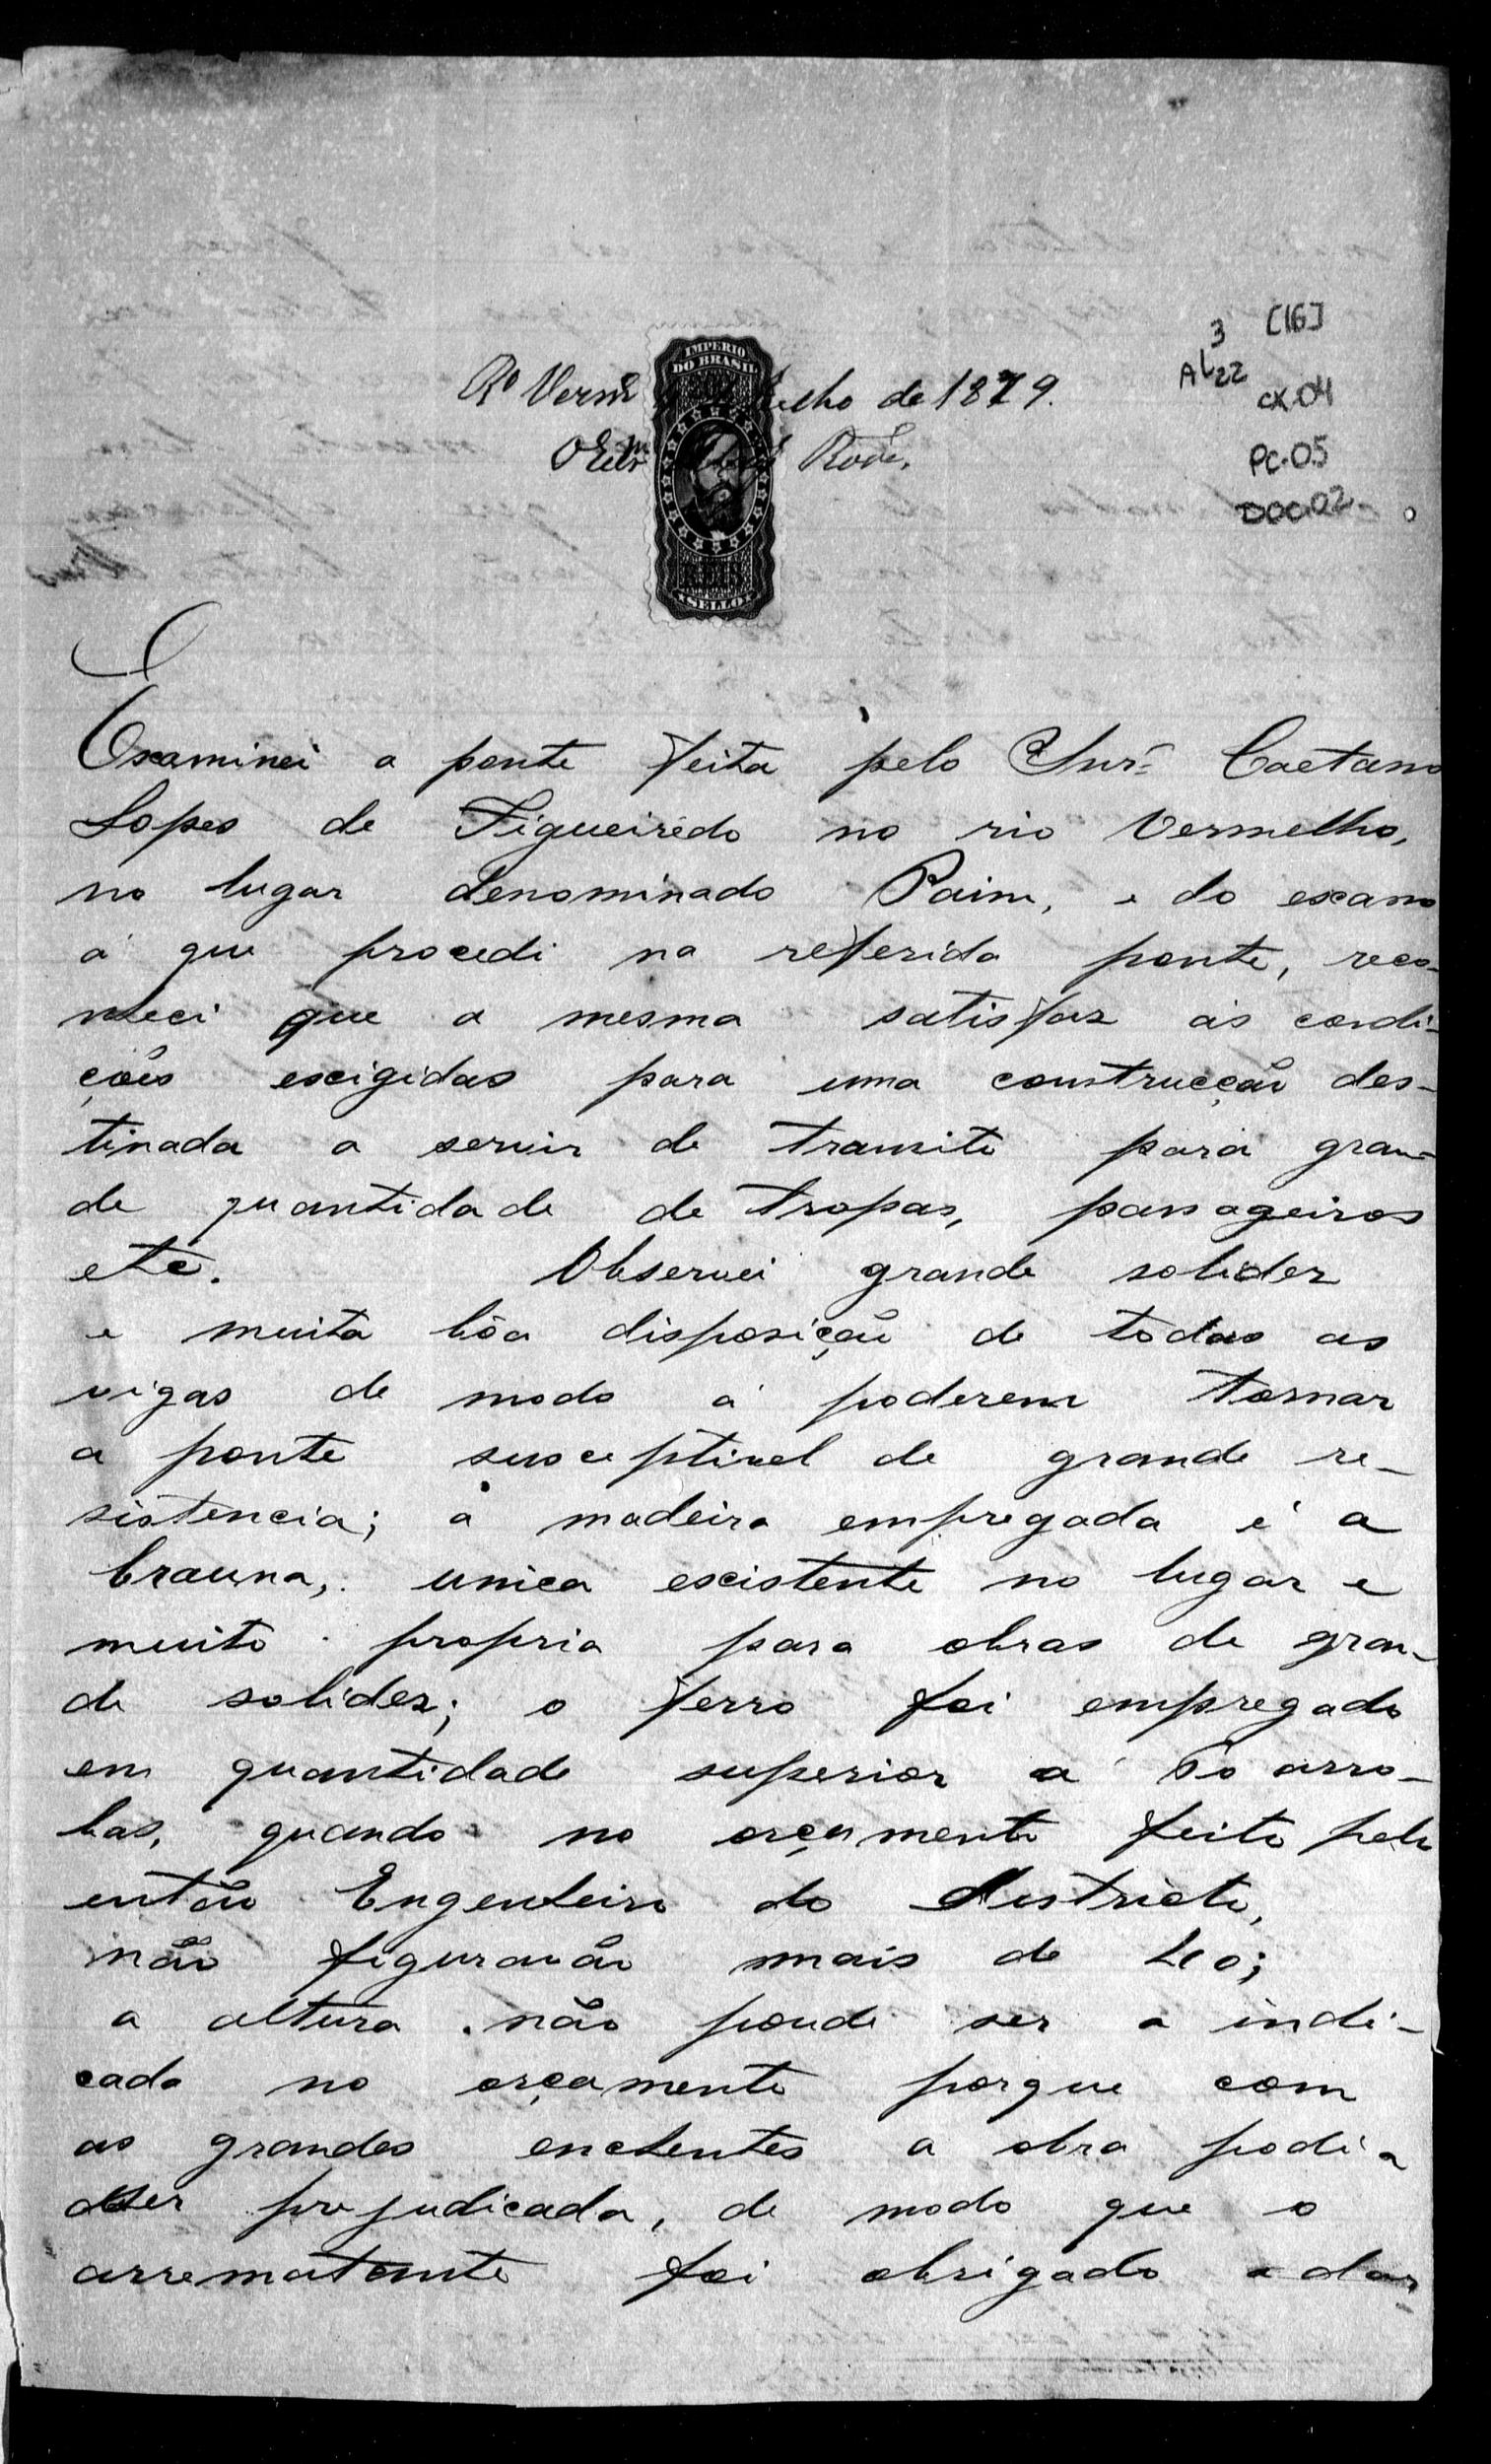 [16]
3
AL22
CX.04
PC.05
DOC.02
IMPERIO
DO BRASIL
Rº Vermº lho de 1879.
REIS
SELLO
Examinei a ponte feita pelo Snr. Caetano
Lopes de Figueirêdo no rio Vermelho,
no lugar denominado Paim, e do exame
á que procedi na referida ponte, reco-
nheci que a mesma satisfaz ás condi-
ções exigidas para uma construcção des-
tinada a servir de transito para gran-
de quantidade de tropas, passageiros
etc. Observei grande solidez
e muita bôa disposição de todas as
vigas de modo á poderem tornar
a ponte susceptivel de grande re-
sistencia; a madeira empregada é a
brauna, unica existente no lugar e
muito propria para obras de gran-
de solidez; o ferro foi empregado
em quantidade superior a arro-
bas, quando no orçamento feito pelo
então Engenheiro do destricto,
não figuravão mais de
a altura não poude ser a indi-
cada no orçamento porque com
as grandes enchentes a obra podia
ser prejudicada, de modo que o
arrematante foi obrigado a dar